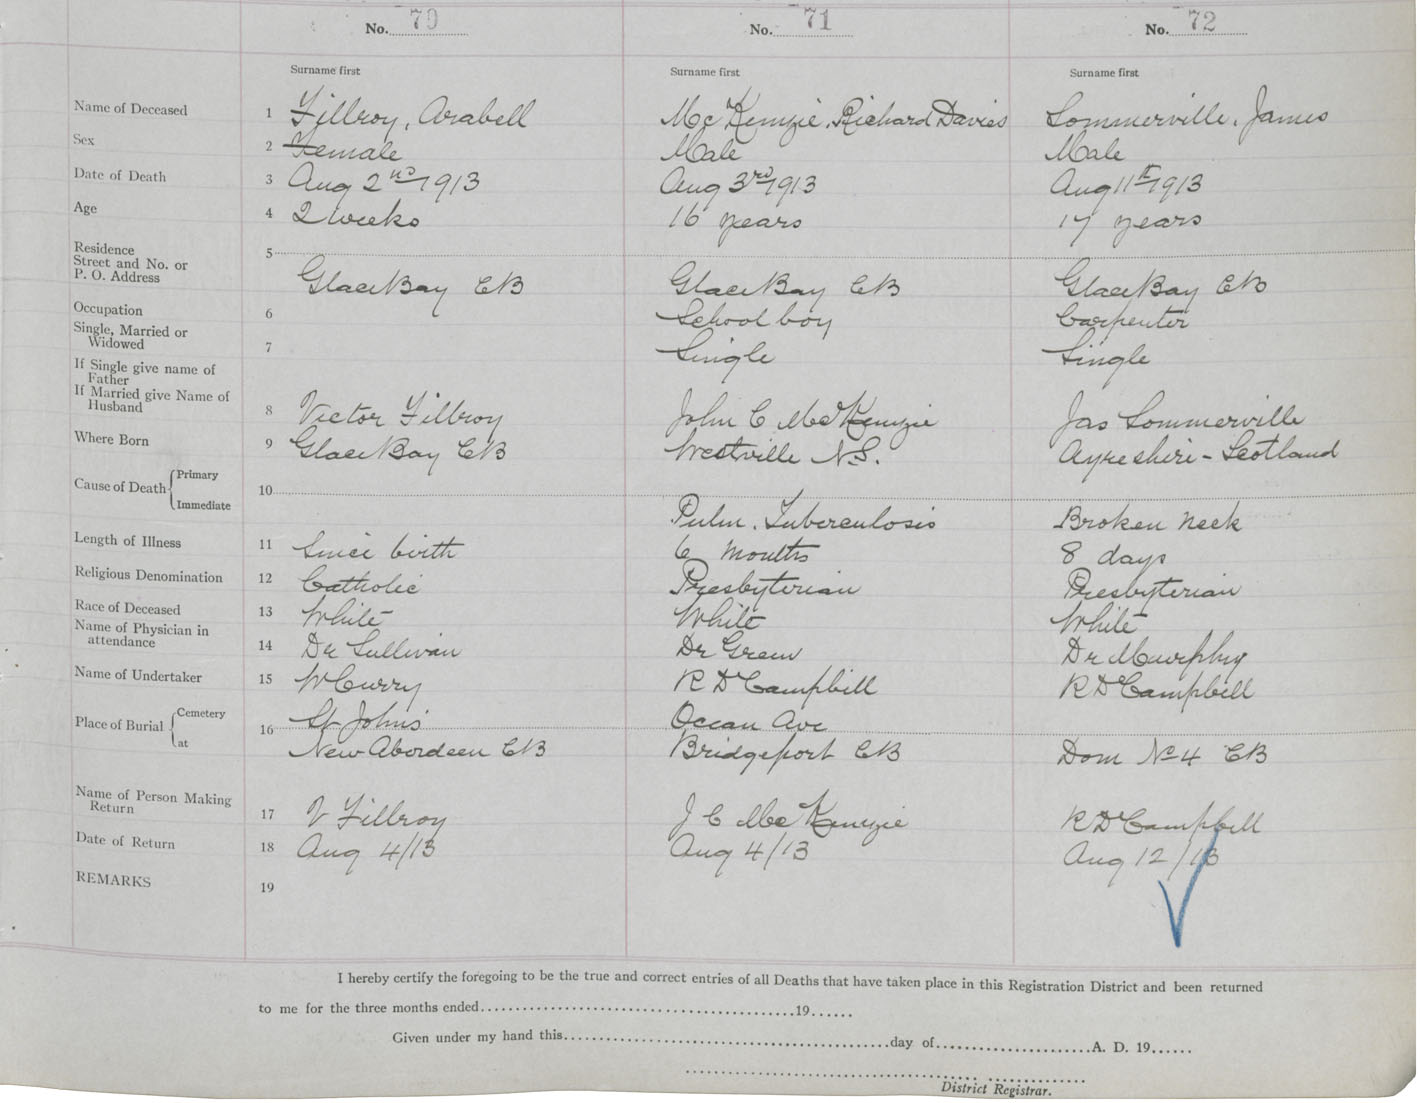 No. 70 No. 71 No. 72
Surname first Surname first Surname first
Name of Deceased 1 Fillroy, Arabell McKenzie, Richard Davies Sommerville, James
Sex 2 Female Male Male
Date of Death 3 Aug 2nd 1913 Aug 3rd 1913 Aug 11th 1913
Age 4 2 weeks 16 years 17 years
Residence
Street and No. or 5
P. O. Address Glace Bay CB Glace Bay CB Glace Bay CB
Occupation 6 School boy Carpenter
Single, Married or
Widowed 7 Single Single
If Single give name of
Father
If Married give Name of
Husband 8 Victor Fillroy John C McKenzie Jas Sommerville
Where Born 9 Glace Bay CB Westville N.S. Ayreshire - Scotland
Cause of Death Primary 10
Immediate Pulm. Tuberculosis Broken neck
Length of Illness 11 Since birth 6 months 8 days
Religious Denomination 12 Catholic Presbyterian Presbyterian
Race of Deceased 13 White White White
Name of Physician in
attendance 14 Dr Sullivan Dr Green Dr Murphy
Name of Undertaker 15 W Curry R D Campbell R D Campbell
Place of Burial Cemetery 16 St Johns Ocean Ave
at New Aberdeen CB Bridgeport CB Dom No 4 CB
Name of Person Making
Return 17 V Fillroy J C McKenzie R D Campbell
Date of Return 18 Aug 4/13 Aug 4/13 Aug 12/13
REMARKS 19
I hereby certify the foregoing to be the true and correct entries of all Deaths that have taken place in this Registration District and been returned
to me for the three months ended..........19......
Given under my hand this..........day of..........A. D. 19......
District Registrar.